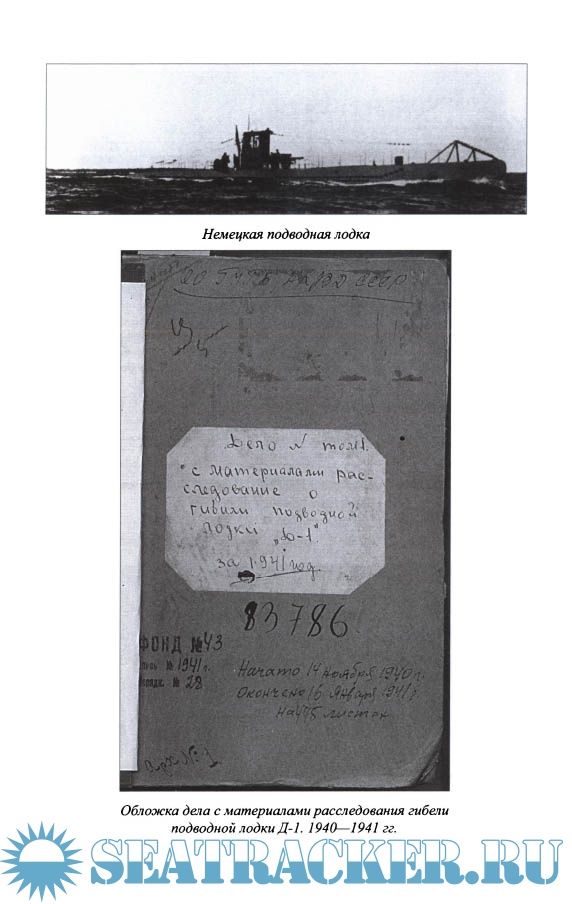 45
Немецкая подводная лодка
НКВД СССР
Дело № том 1.
с материалами рас-
следование о
гибили подводной
лодки „Д-1"
за 1941 год.
83786.
ФОНД № 43
№ 1941 г.
№ 28
Начато 14 ноября 1940 г.
Окончено 16 января 1941 г.
На 475 листах
Обложка дела с материалами расследования гибели
подводной лодки Д-1. 1940—1941 гг.
SEATRACKER.RU